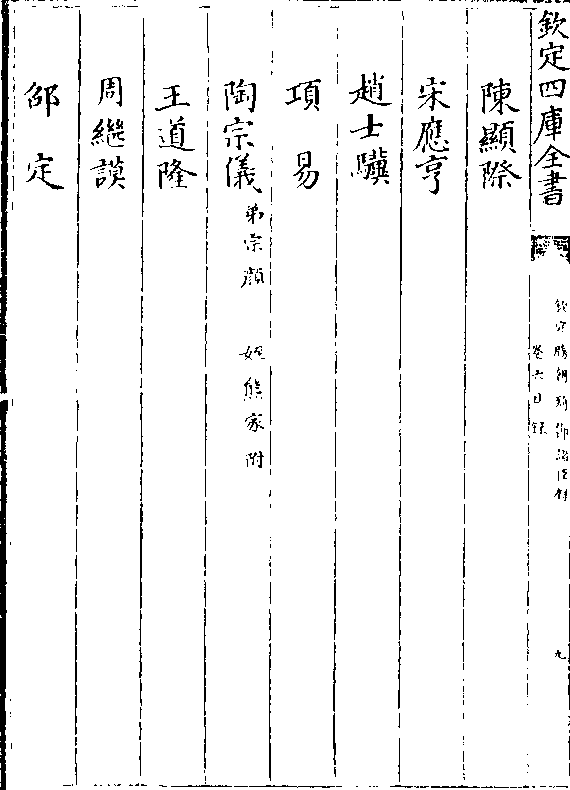 欽定四庫全書
欽定勝朝殉節諸臣錄
卷六目錄
九
陳顯際
宋應亨
趙士驥
項易
陶宗儀 弟宗顏 姪熊家附
王道隆
周繼謨
邵定